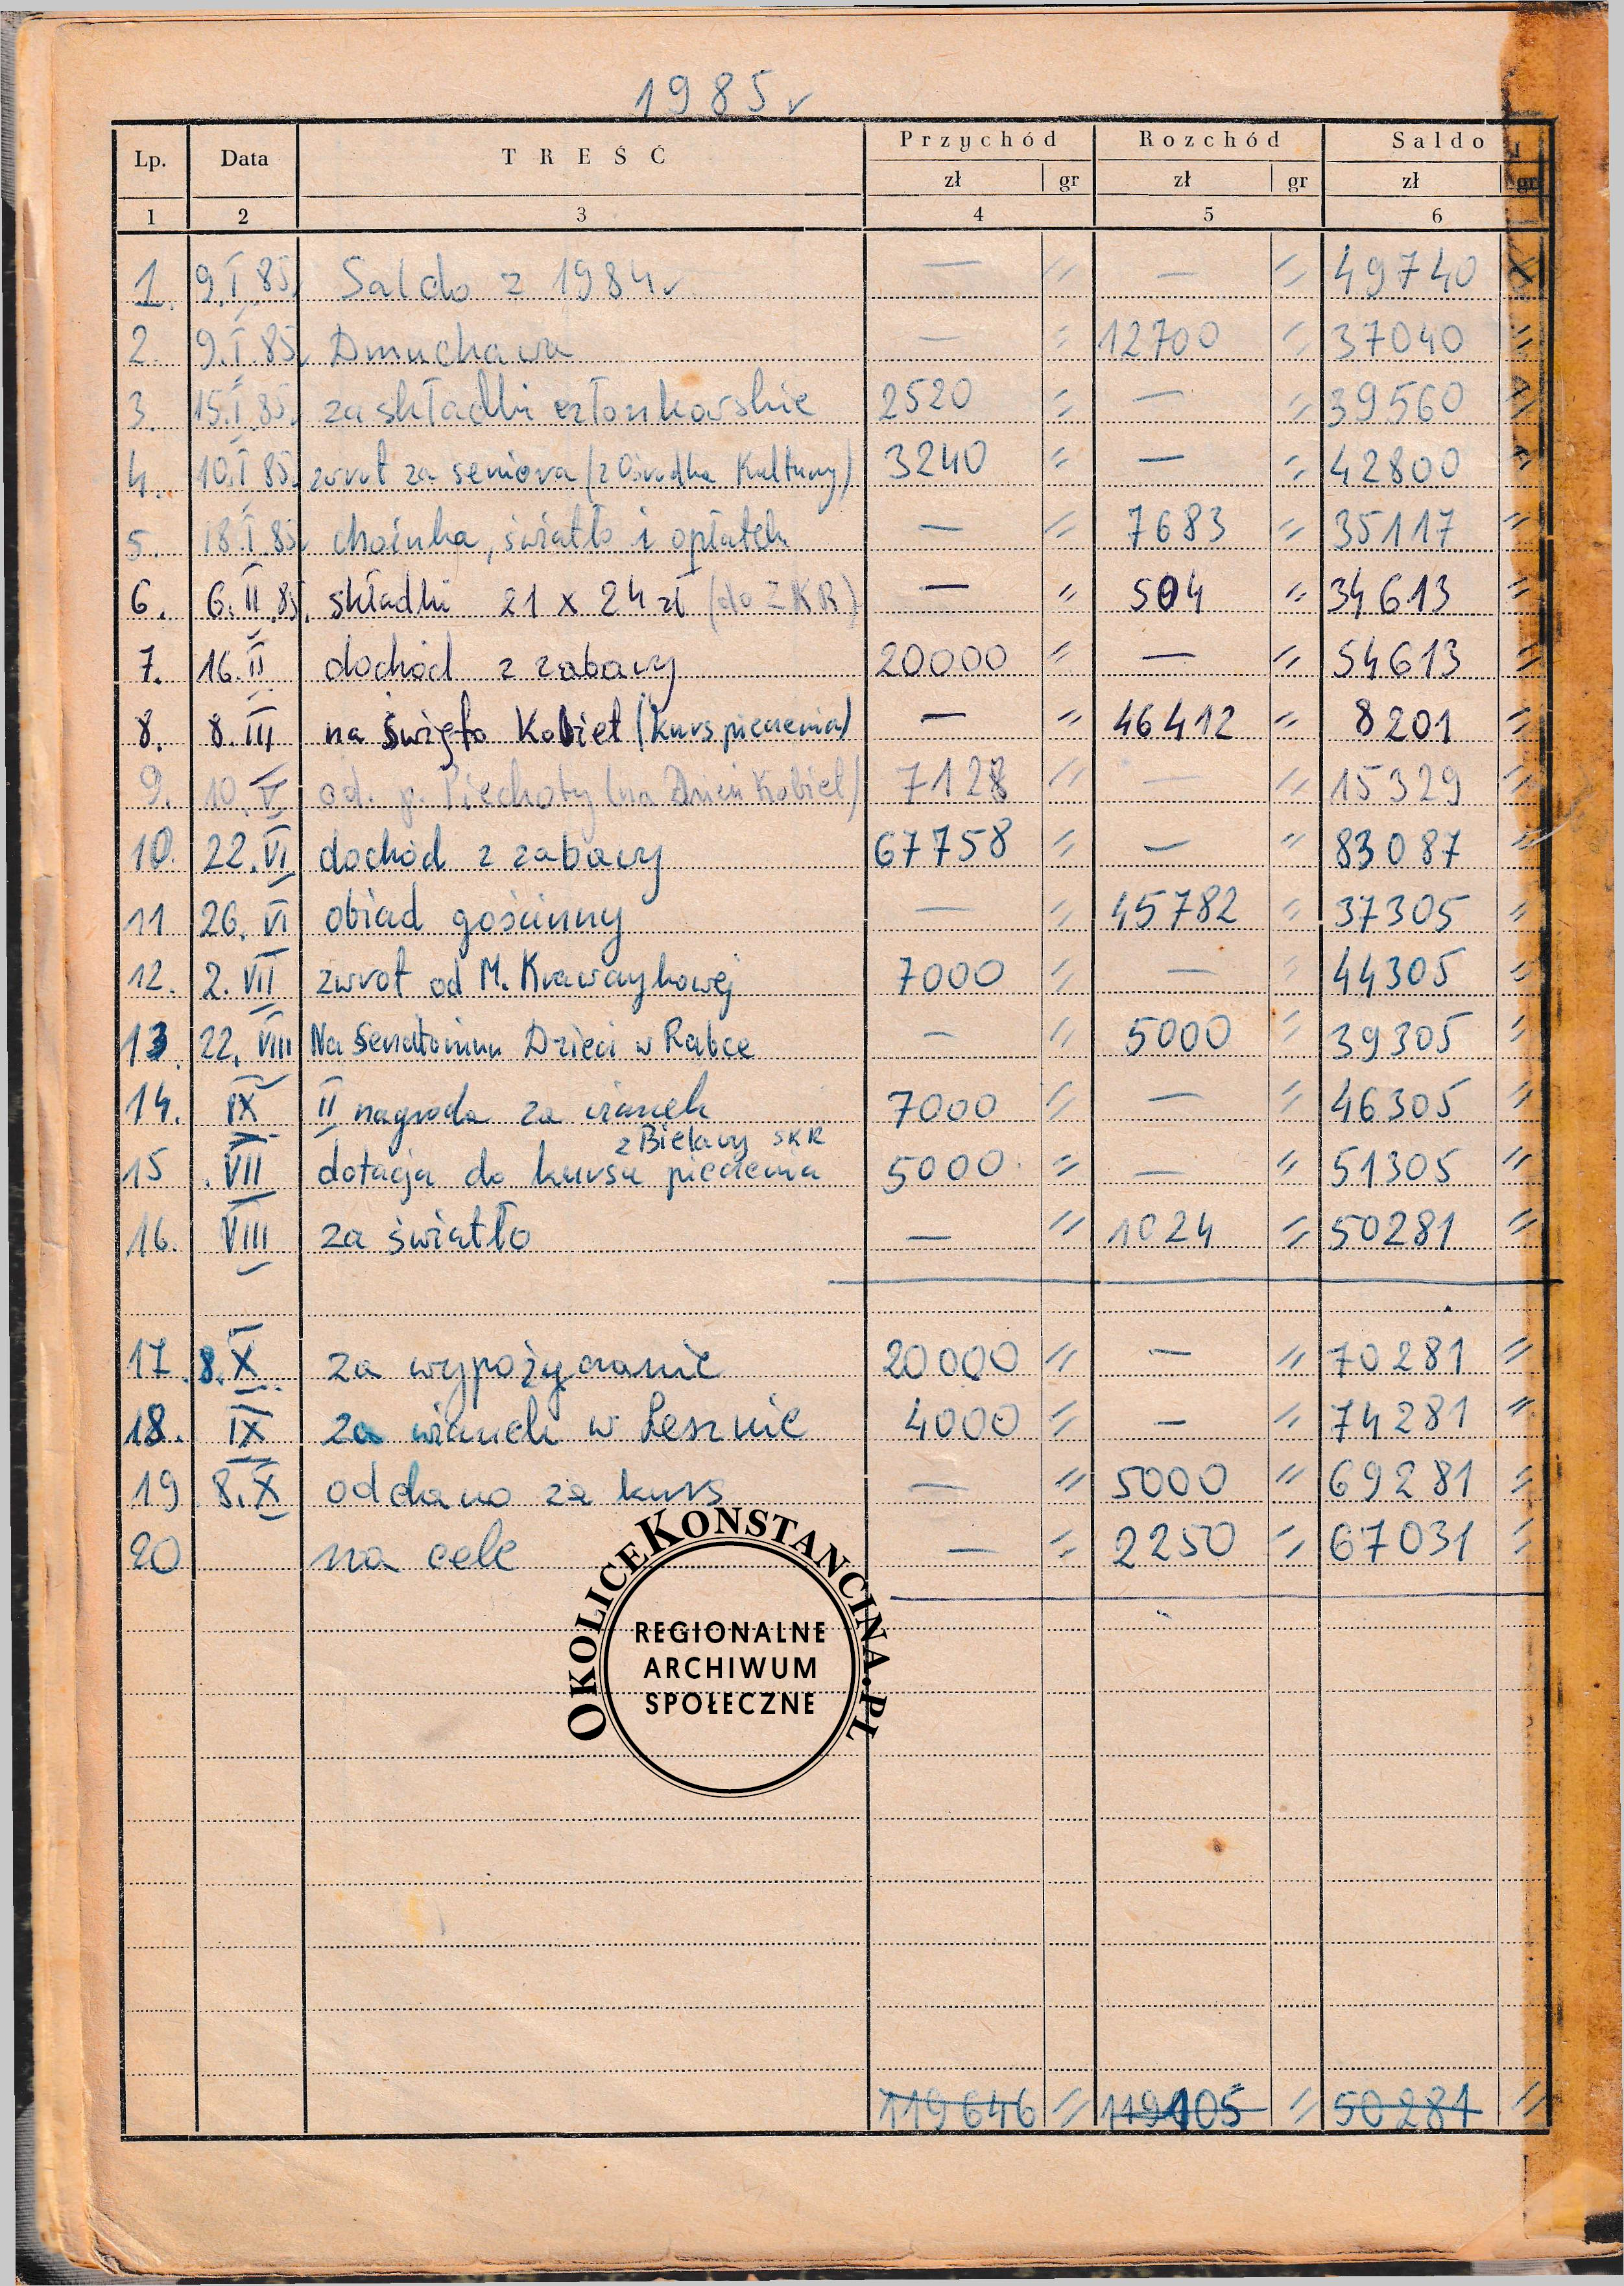 1985 r
Lp. Data TREŚĆ Przychód Rozchód Saldo
zł gr zł gr zł gr
1 2 3 4 5 6
1. 9.I.85. Saldo z 1984 r — = — = 49740
2. 9.I.85. Dmuchawa — = 12700 = 37040 =
3. 15.I.85. za składki członkowskie 2520 = — = 39560
4. 10.I.85. zwrot za seniora (z Ośrodka Kultury) 3240 = — = 42800
5. 18.I.85. choinka, światło i opłatek — = 7683 = 35117 =
6. 6.II.85. składki 21 x 24 zł (do ZKR) — = 504 = 34613 =
7. 16.II dochód z zabawy 20000 = — = 54613 =
8. 8.III na Święto Kobiet (kurs pieczenia) — = 46412 = 8201 =
9. 10.V od. p. Piechoty (na Dzień Kobiet) 7128 = — = 15329
10. 22.VI dochód z zabawy 67758 = — = 83087 =
11 26.VI obiad gościnny — = 45782 = 37305 =
12. 2.VII zwrot od M. Krawczykowej 7000 = — = 44305 =
13. 22.VIII Na Dzieci w Rabce — = 5000 = 39305 =
14. IX II nagroda za wianek 7000 = — = 46305 =
z Bielawy SKR
15 VII dotacja do kursu pieczenia 5000 = — = 51305 =
16. VIII za światło — = 1024 = 50281 =
17. 8.X za wypożyczanie 20000 = — = 70281 =
18. IX za wianek w Lesznie 4000 = — = 74281 =
19 8.X oddano za kurs — = 5000 = 69281 =
20 na cele — = 2250 = 67031 =
OKOLICEKONSTANCINA.PL
REGIONALNE
ARCHIWUM
SPOŁECZNE
119646 = 119105 = 50281 =